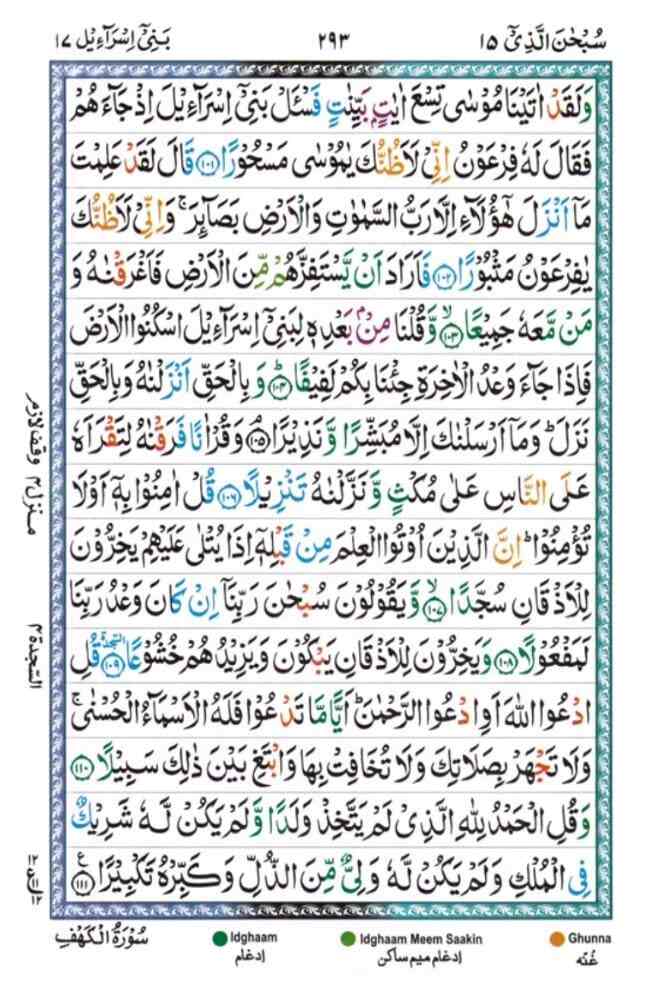 سُبْحٰنَ الَّذِیْۤ ١٥ ٢٩٣ بَنِیْۤ اِسْرَآءِیْل ١٧
وَلَقَدْ اٰتَیْنَا مُوْسٰی تِسْعَ اٰیٰتٍۭ بَیِّنٰتٍ فَسْـَٔلْ بَنِیْۤ اِسْرَآءِیْلَ اِذْ جَآءَهُمْ
فَقَالَ لَهٗ فِرْعَوْنُ اِنِّیْ لَاَظُنُّكَ یٰمُوْسٰی مَسْحُوْرًا ﴿١٠١﴾ قَالَ لَقَدْ عَلِمْتَ
مَاۤ اَنْزَلَ هٰۤؤُلَآءِ اِلَّا رَبُّ السَّمٰوٰتِ وَالْاَرْضِ بَصَآىِٕرَ ۚ وَاِنِّیْ لَاَظُنُّكَ
یٰفِرْعَوْنُ مَثْبُوْرًا ﴿١٠٢﴾ فَاَرَادَ اَنْ یَّسْتَفِزَّهُمْ مِّنَ الْاَرْضِ فَاَغْرَقْنٰهُ وَ
مَنْ مَّعَهٗ جَمِیْعًا ﴿١٠٣﴾ۙ وَّقُلْنَا مِنْۢ بَعْدِهٖ لِبَنِیْۤ اِسْرَآءِیْلَ اسْكُنُوا الْاَرْضَ
فَاِذَا جَآءَ وَعْدُ الْاٰخِرَةِ جِئْنَا بِكُمْ لَفِیْفًا ﴿١٠٤﴾ؕ وَبِالْحَقِّ اَنْزَلْنٰهُ وَبِالْحَقِّ
نَزَلَ ؕ وَمَاۤ اَرْسَلْنٰكَ اِلَّا مُبَشِّرًا وَّنَذِیْرًا ﴿١٠٥﴾ۘ وَقُرْاٰنًا فَرَقْنٰهُ لِتَقْرَاَهٗ
عَلَی النَّاسِ عَلٰی مُكْثٍ وَّنَزَّلْنٰهُ تَنْزِیْلًا ﴿١٠٦﴾ قُلْ اٰمِنُوْا بِهٖۤ اَوْ لَا
تُؤْمِنُوْا ؕ اِنَّ الَّذِیْنَ اُوْتُوا الْعِلْمَ مِنْ قَبْلِهٖۤ اِذَا یُتْلٰی عَلَیْهِمْ یَخِرُّوْنَ
لِلْاَذْقَانِ سُجَّدًا ﴿١٠٧﴾ۙ وَّیَقُوْلُوْنَ سُبْحٰنَ رَبِّنَاۤ اِنْ كَانَ وَعْدُ رَبِّنَا
لَمَفْعُوْلًا ﴿١٠٨﴾ وَیَخِرُّوْنَ لِلْاَذْقَانِ یَبْكُوْنَ وَیَزِیْدُهُمْ خُشُوْعًا ﴿١٠٩﴾ السجدة قُلِ
ادْعُوا اللّٰهَ اَوِ ادْعُوا الرَّحْمٰنَ ؕ اَیًّا مَّا تَدْعُوْا فَلَهُ الْاَسْمَآءُ الْحُسْنٰی ۚ
وَلَا تَجْهَرْ بِصَلَاتِكَ وَلَا تُخَافِتْ بِهَا وَابْتَغِ بَیْنَ ذٰلِكَ سَبِیْلًا ﴿١١٠﴾
وَقُلِ الْحَمْدُ لِلّٰهِ الَّذِیْ لَمْ یَتَّخِذْ وَلَدًا وَّلَمْ یَكُنْ لَّهٗ شَرِیْكٌ
فِی الْمُلْكِ وَلَمْ یَكُنْ لَّهٗ وَلِیٌّ مِّنَ الذُّلِّ وَكَبِّرْهُ تَكْبِیْرًا ﴿١١١﴾ ع
وقف لازم
منزل ٤
السجدة ٤
سُوْرَةُ الْكَهْفِ
Idghaam
ادغام
Idghaam Meem Saakin
ادغام میم ساکن
Ghunna
غُنّه